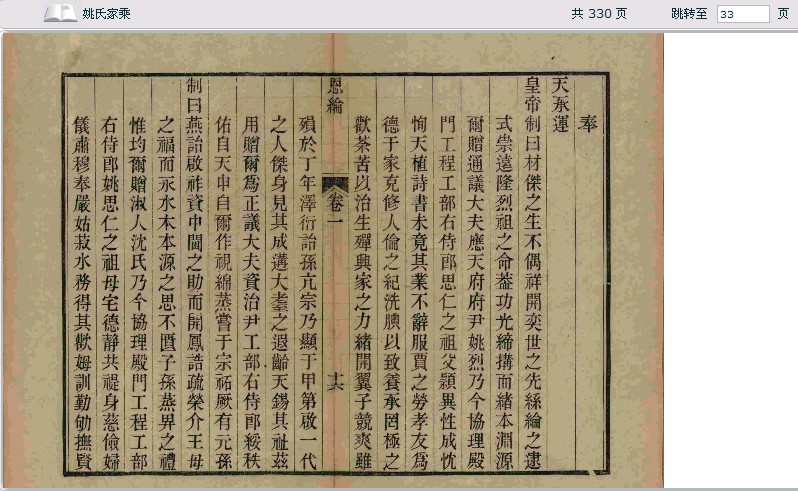 姚氏家乘
共 330 页
跳转至 33 页
奉
天承運
皇帝制曰材傑之生不偶祥開奕世之先絲綸之逮
式崇遠隆烈祖之命葢功光締搆而緒本淵源
爾贈通議大夫應天府府尹姚烈乃今協理殿
門工程工部右侍郎思仁之祖父頴異性成忱
恂天植詩書未竟其業不辭服賈之勞孝友爲
德于家克修人倫之紀洗腆以致養承罔極之
歡茶苦以治生殫興家之力緒開翼子競爽雖
恩綸
卷一
十六
殞於丁年澤衍詒孫亢宗乃顯于甲第啟一代
之人傑身見其成溝大耋之遐齡天錫其祉茲
用贈爾爲正議大夫資治尹工部右侍郎綏秩
佑自天申自爾作視綿蒸嘗于宗祏厥有元孫
制曰燕詒啟祚資中閫之助而開鳳誥疏榮介王母
之福而永水木本源之思不匱子孫蒸畀之禮
惟均爾贈淑人沈氏乃今協理殿門工程工部
右侍郎姚思仁之祖母宅德靜共褆身慈儉婦
儀肅穆奉嚴姑菽水務得其歡姆訓勤劬撫賢